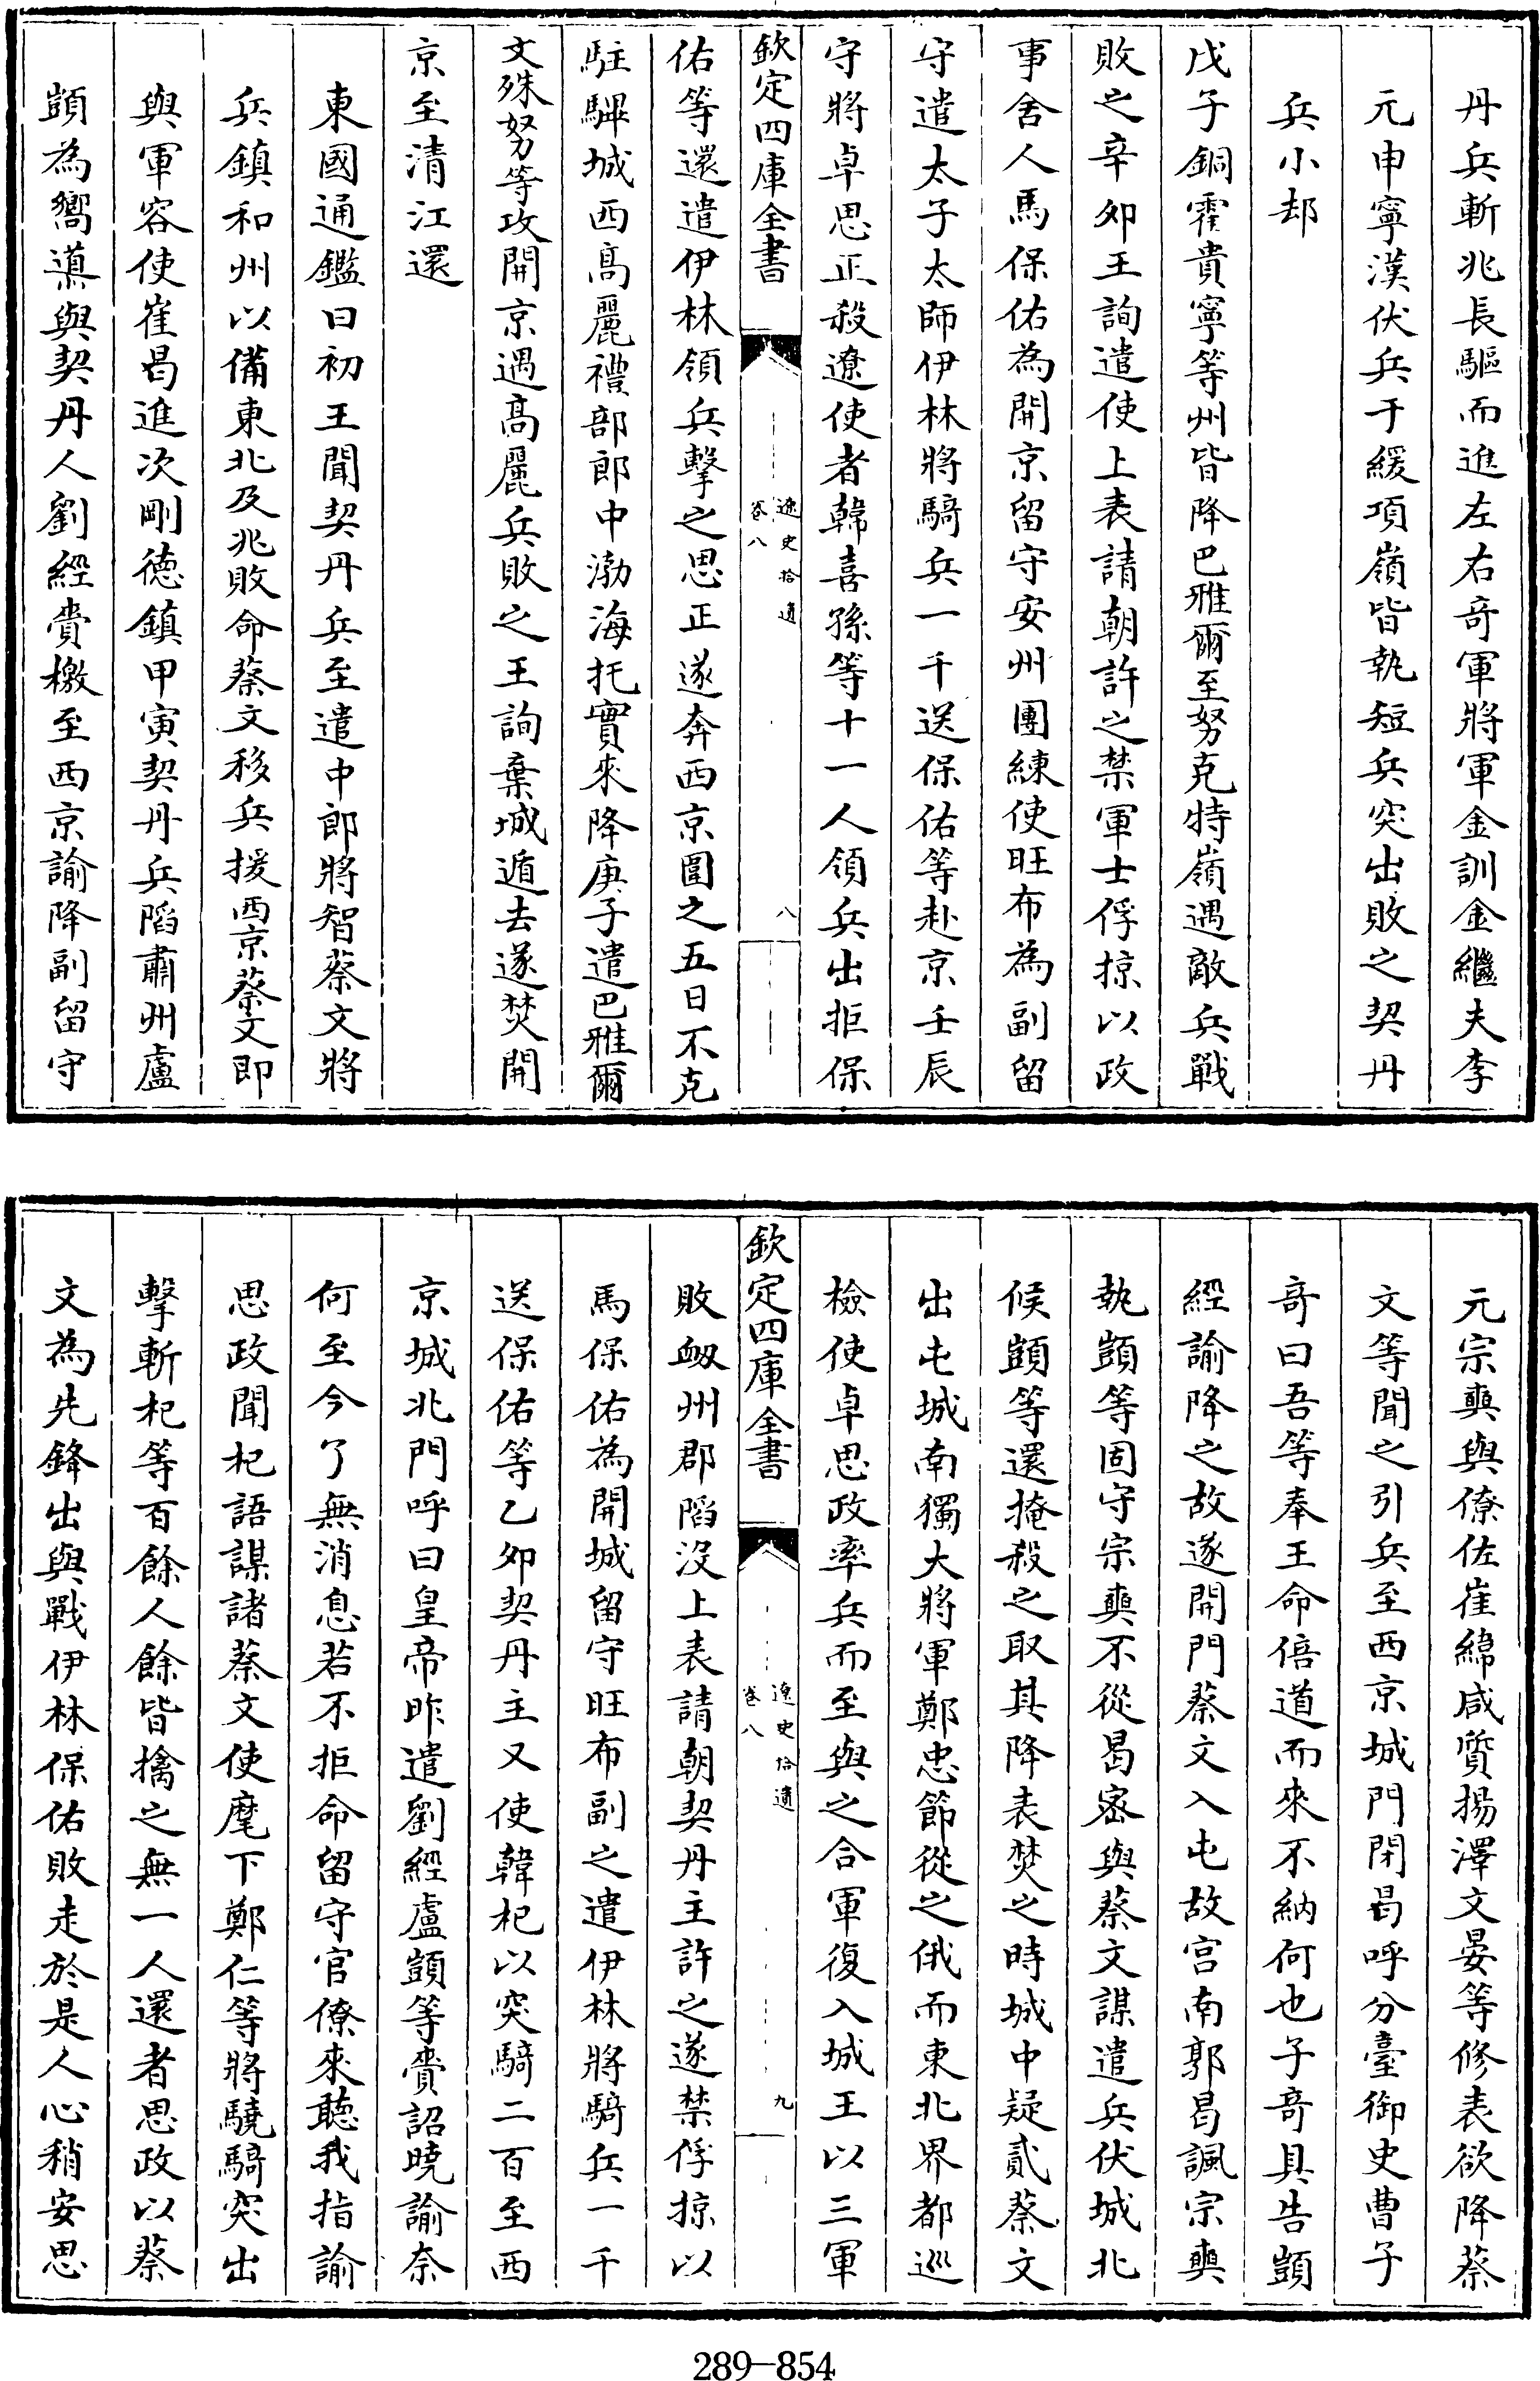 丹兵斬兆長驅而進左右竒軍將軍金訓金繼夫李
元申寧漢伏兵于緩項嶺皆執短兵突出敗之契丹
兵小却
戊子銅霍貴寧等州皆降巴雅爾至努克特嶺遇敵兵戰
敗之辛夘王詢遣使上表請朝許之禁軍士俘掠以政
事舍人馬保佑為開京留守安州團練使旺布為副留
守遣太子太師伊林將騎兵一千送保佑等赴京壬辰
守將卓思正殺遼使者韓喜孫等十一人領兵出拒保
欽定四庫全書
遼史拾遺
卷八
八
佑等還遣伊林領兵擊之思正遂奔西京圍之五日不克
駐驆城西髙麗禮部郎中渤海托實來降庚子遣巴雅爾
文殊努等攻開京遇髙麗兵敗之王詢棄城遁去遂焚開
京至清江還
東國通鑑曰初王聞契丹兵至遣中郎將智蔡文將
兵鎮和州以備東北及兆敗命蔡文移兵援西京蔡文即
與軍容使崔昌進次剛德鎮甲寅契丹兵䧟肅州盧
顗為嚮導與契丹人劉經賫檄至西京諭降副留守
元宗奭與僚佐崔緯咸質揚澤文晏等修表欲降蔡
文等聞之引兵至西京城門閉昌呼分臺御史曹子
竒曰吾等奉王命倍道而來不納何也子竒具告顗
經諭降之故遂開門蔡文入屯故宫南郭昌諷宗奭
執顗等固守宗奭不從昌宻與蔡文謀遣兵伏城北
候顗等還掩殺之取其降表焚之時城中疑貳蔡文
出屯城南獨大將軍鄭忠節從之俄而東北界都巡
檢使卓思政率兵而至與之合軍復入城王以三軍
欽定四庫全書
遼史拾遺
卷八
九
敗衂州郡䧟没上表請朝契丹主許之遂禁俘掠以
馬保佑為開城留守旺布副之遣伊林將騎兵一千
送保佑等乙夘契丹主又使韓杞以突騎二百至西
京城北門呼曰皇帝昨遣劉經盧顗等賫詔曉諭奈
何至今了無消息若不拒命留守官僚來聽我指諭
思政聞杞語謀諸蔡文使麾下鄭仁等將驍騎突出
擊斬杞等百餘人餘皆擒之無一人還者思政以蔡
文為先鋒出與戰伊林保佑敗走於是人心稍安思
289-854